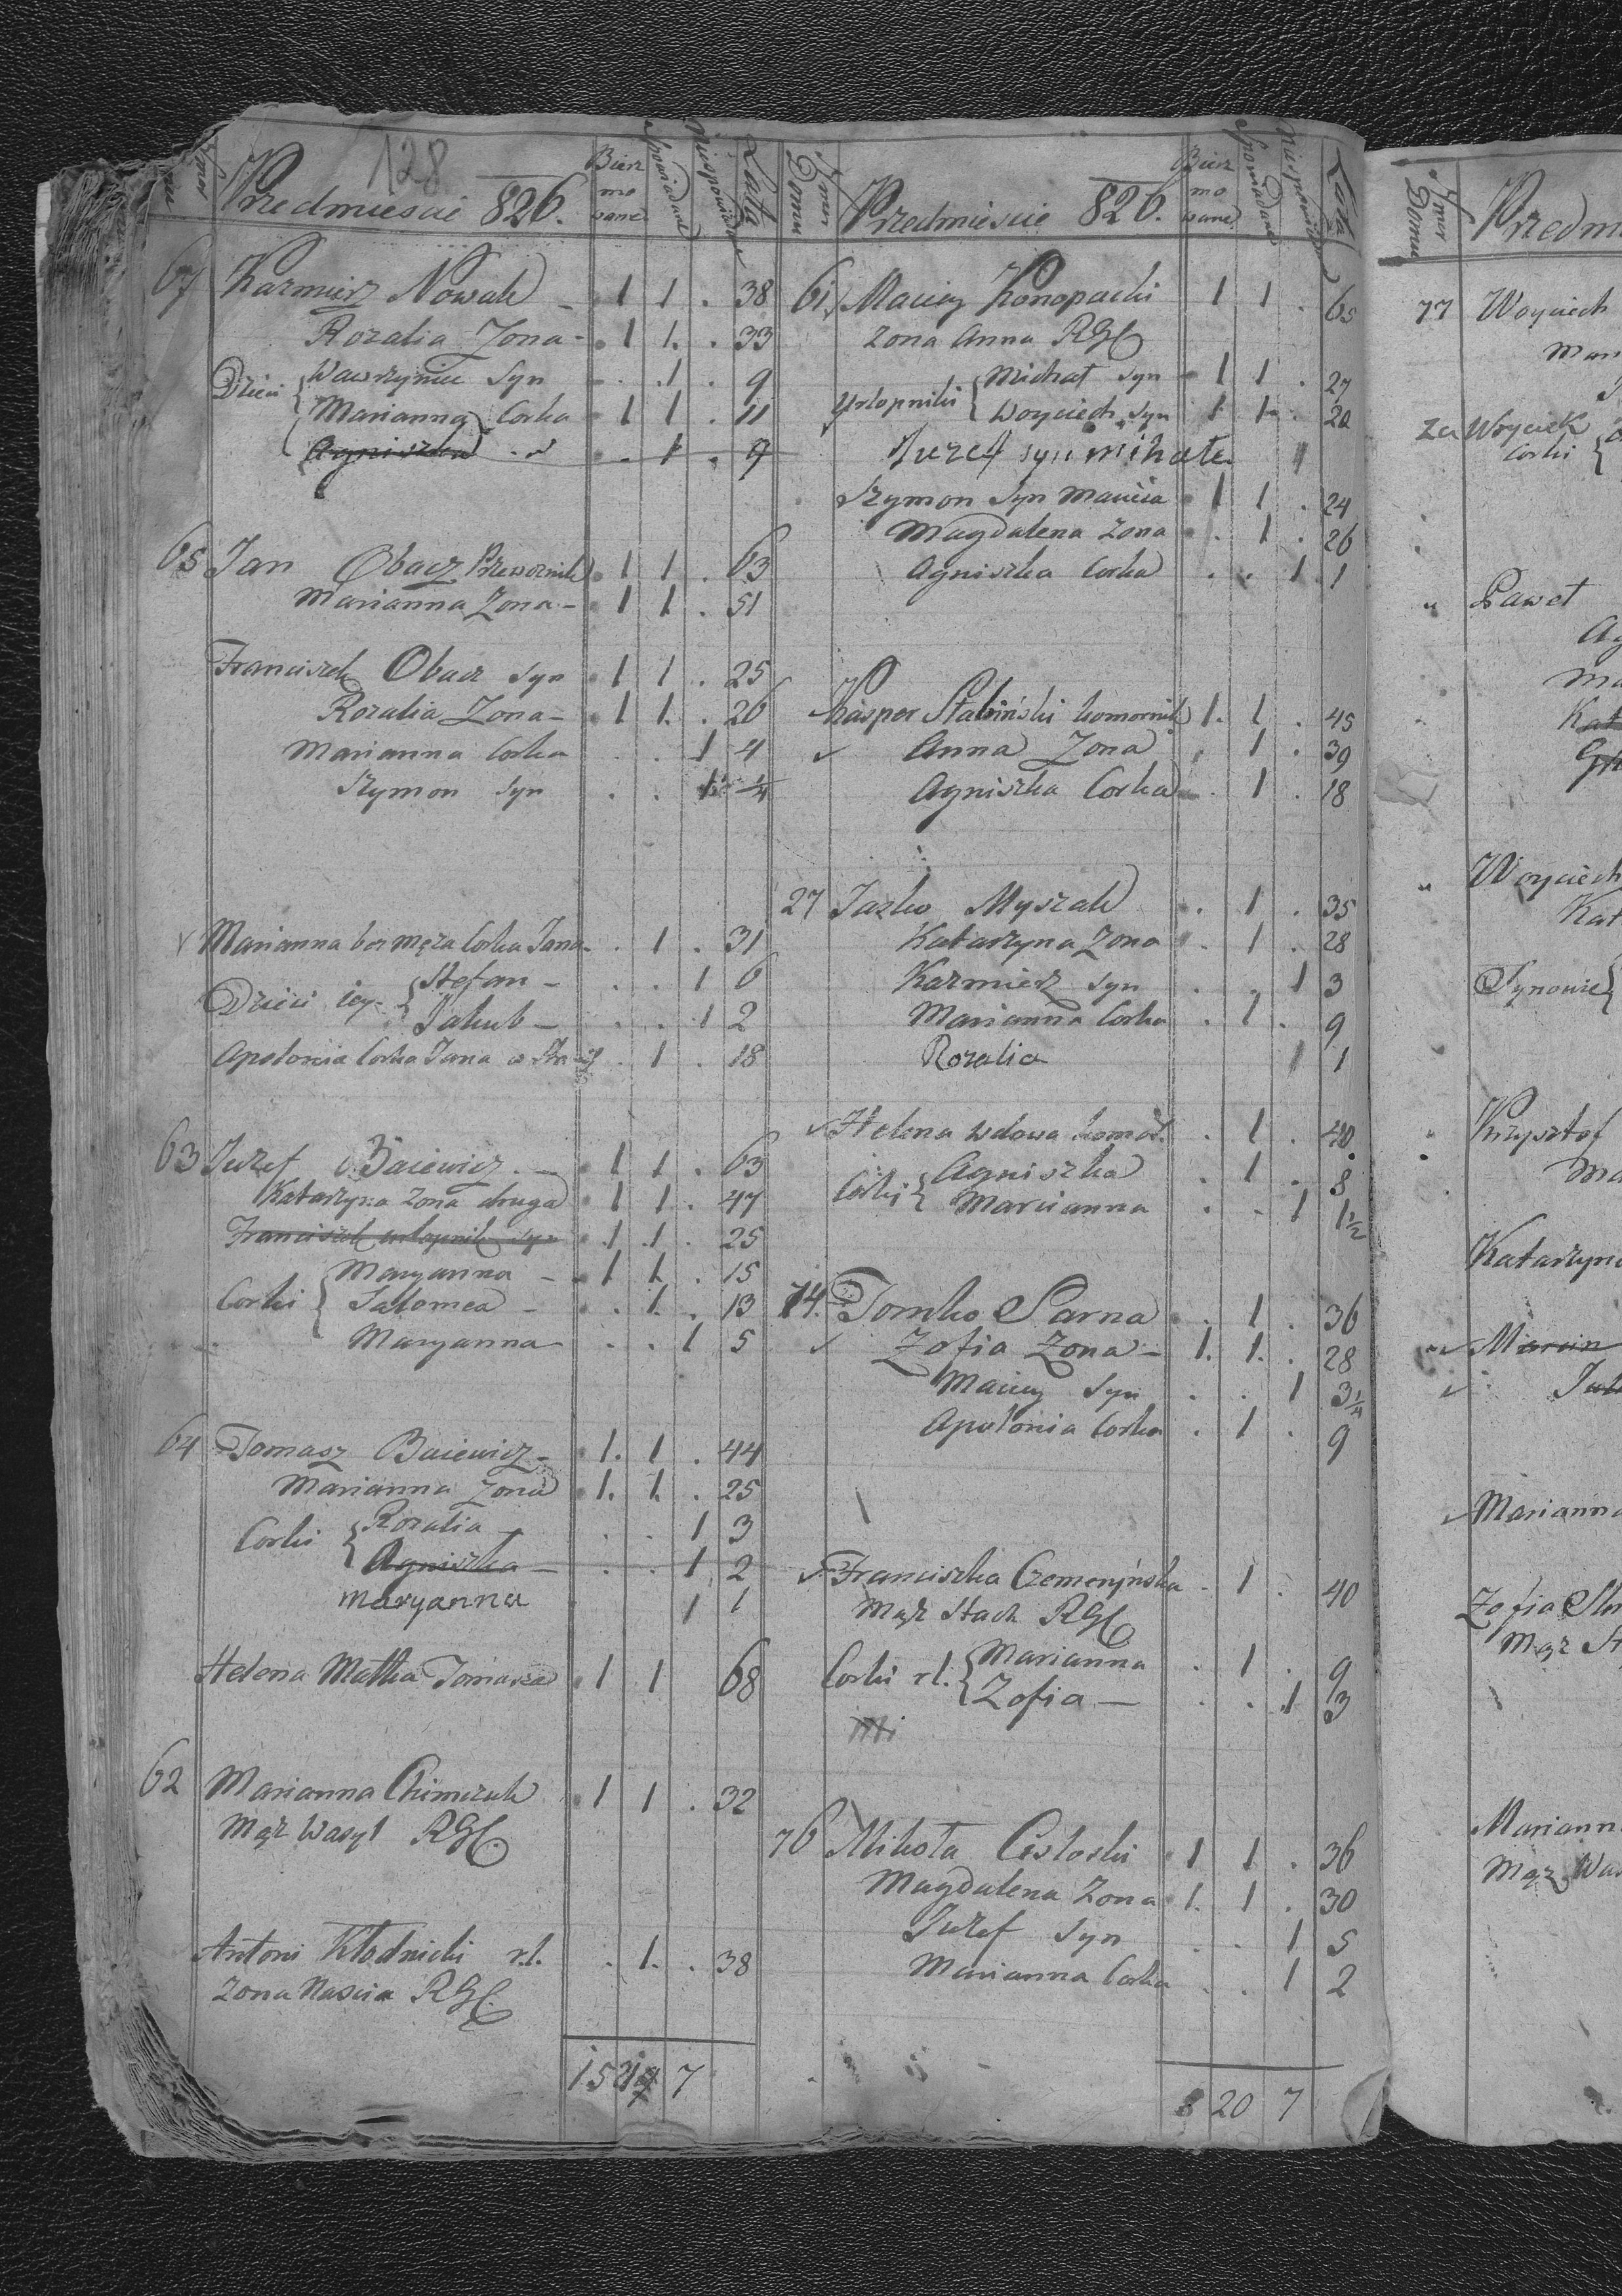 128
Przedmiescie 826.
Bierz
mo
wane
Spowiadane
Niespowiadane
Lata
67 Kazmierz Nowak - 1 1 . 38
Rozalia Zona - . 1 1. . 33
Dzieci { Wawrzyniec Syn . . 1 . 9
Marianna Corka 1 1 . 11
Agniszka . . 1 . 9
65 Jan Obacz Przewoznik . 1 1 . 63
Marianna Zona - 1 1 . 51
Franciszek Obacz Syn . 1 1 . 25
Rozalia Zona - 1 1. . 26
Marianna Corka . . 1 4
Szymon Syn . . 1 1/4
Marianna bez męża Corka Jana . 1 . 31
Dzieci iey { Stefan - . . 1 6
Jakub - . . 1 2
Apolonia Corka Jana . 1 . 18
63 Juzef Baiewicz . - 1 1 . 63
Katarzyna Zona druga 1 1 . 47
Franciszek urlopnik Syn 1 1 . 25
Corki { Maryanna - 1 1. . 15
Salomea - . . 1. . 13
Maryanna . . 1 5
64 Tomasz Baiewicz - 1. 1 . 44
Marianna Zona 1. 1. . 25
Corki { Rozalia - . . 1 3
Agniszka - . . 1 2
Maryanna 1 1
Helena Matka Tomasza . 1 1 68
62 Marianna Chimczuk . 1 1 . 32
Mąż Wasyl RGC.
Antoni Kłodnicki r.l. . 1. . 38
Zona Nascia RGC.
15 7
Nmer
Domu
Przedmiescie 826.
Bierz
mo
wane
Spowiadane
Lata
61 Maciey Konopacki 1 1 . 65
Zona Anna RGC
Urlopniki { Michał Syn 1 1 . 27
Woyciech Syn 1 1. . 20
Juzef syn mihała 1
Szymon Syn Macieia 1 1 . 24
Magdalena Zona . 1 . 26
Agniszka Corka . . 1 1
Kasper Stabinski komornik 1. 1 . 45
Anna Zona . 1 . 39
Agniszka Corka . 1 . 18
27 Jasko Myszak . 1 . 35
Katarzyna Zona . 1 . 28
Kazmierz Syn . . 1 3
Marianna Corka . 1 . 9
Rozalia 1 1
Helena wdowa komor. . 1 . 40
Corki { Agniszka . 1 . 8
Marianna . . 1 1 1/2
74. Tomko Sarna . 1 . 36
Zofia Zona - 1. 1. . 28
Maciey Syn . . 1 3 1/4
Apolonia Corka . 1 . 9
Franciszka Czemeryńska . 1 . 40
Mąż Stach RGC
Corki r.l. { Marianna . 1 . 9
Zofia - . . 1 3
76 Mikoła Cisloski 1 1 . 36
Magdalena Zona 1. 1 . 30
Juzef Syn . . 1 5
Marianna Corka . . 1 2
8 20 7
Nmer
Domu
Przedm
77 Woyciech
Woyciek
Corki {
Paweł
Woyciech
Kat
Synowie {
Krzysztof
Ma
Katarzyna
Marcin
Marianna
Zofia
Mąż
Mariann
Mąż Wa